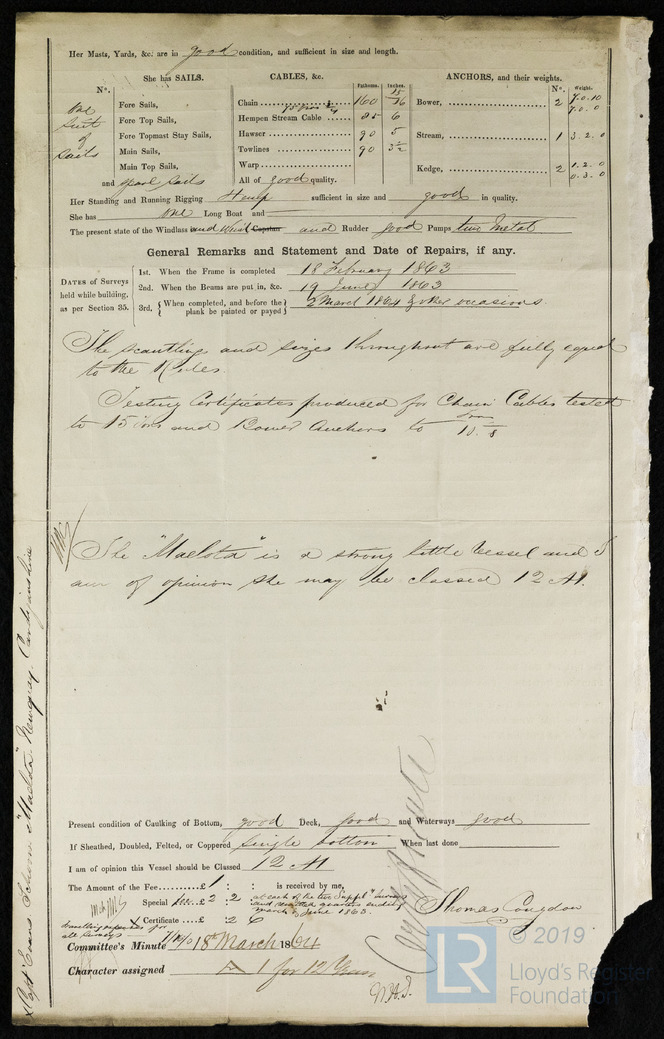 Her Masts, Yards, &c. are in good condition, and sufficient in size and length.
She has SAILS.
N°.
one Suit of Sails
Fore Sails,
Fore Top Sails,
Fore Topmast Stay Sails,
Main Sails,
Main Top Sails,
and spare sails
CABLES, &c.
Fathoms. Inches.
Chain 160 15/16
Hempen Stream Cable 85 6
Hawser 90 5
Towlines 90 3½
Warp
All of good quality.
ANCHORS, and their weights.
N°. Weight.
Bower, 2 7.0.10
7.0.0
Stream, 1 3.2.0
Kedge, 2 1.2.0
0.3.0
Her Standing and Running Rigging Hemp sufficient in size and good in quality.
She has one Long Boat and
The present state of the Windlass and Winch Capstan and Rudder good Pumps two Metal
General Remarks and Statement and Date of Repairs, if any.
DATES of Surveys held while building, as per Section 35.
1st. When the Frame is completed 18 February 1863
2nd. When the Beams are put in, &c. 19 June 1863
3rd, { When completed, and before the plank be painted or payed } 2 March 1864 & other occasions
The scantling and sizes throughout are fully equal
to the Rules.
Testing Certificates produced for Chain Cables tested
to 15 tons and Bower Anchors to
The "Maelota" is a strong little vessel and I
am of opinion she may be classed 12 A1.
Capt Evans Schooner "Maelota" Newquay Cardiganshire
Present condition of Caulking of Bottom, good Deck, good and Waterways good
If Sheathed, Doubled, Felted, or Coppered Single bottom When last done
I am of opinion this Vessel should be Classed 12 A1
The Amount of the Fee £1 : : is received by me,
Special fee £2 : 2 : at each of the two Suppl Surveys
and remitted quarters ending
March & June 1863.
Certificate : 2 6
travelling expenses for
all Surveys
Thomas Congdon
Committee's Minute 18 March 1864
Character assigned A 1 for 12 Years
© 2019
LR
Lloyd's Register
Foundation